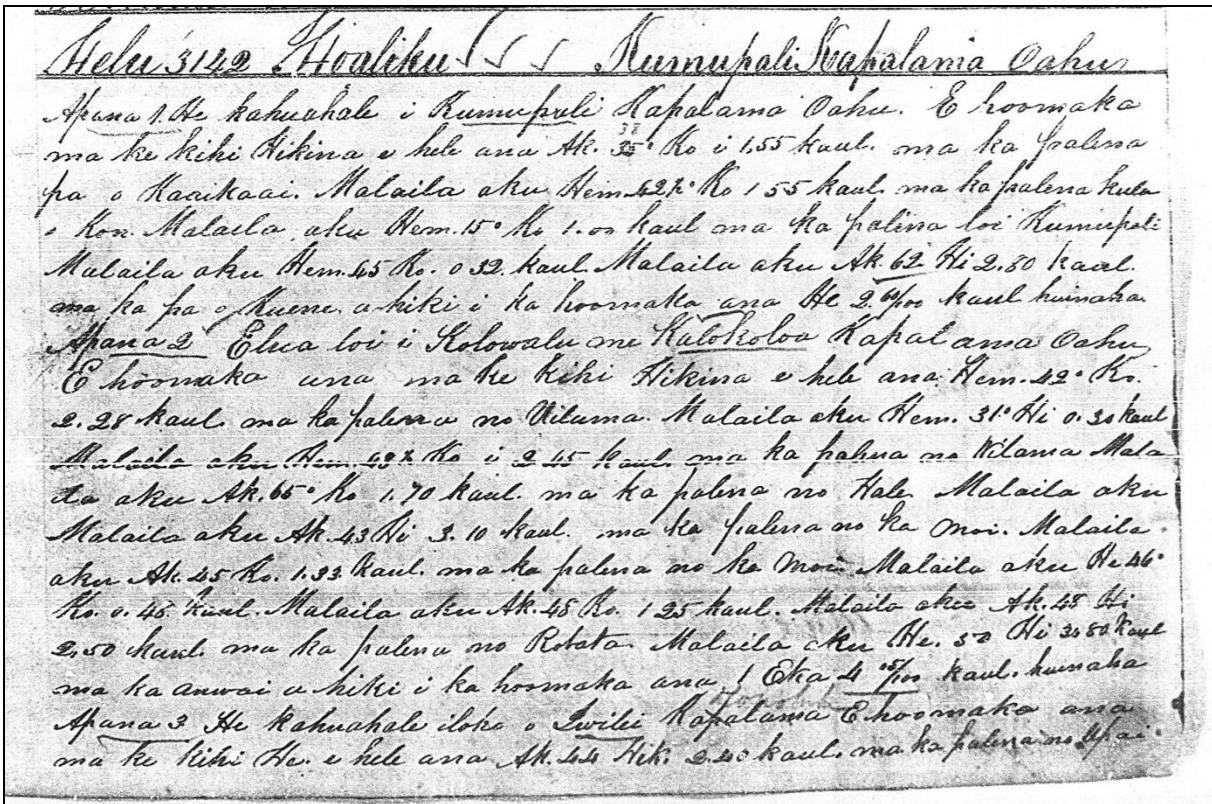 Helu 3142 Hoaliku Kumupali Kapalama Oahu
Apana 1. He kahuahale i Kumupali Kapalama Oahu. E hoomaka
38
ma ke kihi Hikina e hele ana Ak. 35° Ko i 1,55 kaul. ma ka palena
pa o Kaaikaai. Malaila aku Hem. 42½° Ko 1 55 kaul. ma ka palena kula
o Kon. Malaila aku Hem. 15° Ko 1.00 kaul ma ka palena loi Kumupali
Malaila aku Hem. 45 Ko. 0 32 kaul. Malaila aku Ak. 62 Hi 2.80 kaul.
ma ka pa o Kuene a hiki i ka hoomaka ana He 2. 60/100 kaul huinaha.
Apana 2 Elua loi i Kolowalu me Kalokoloa Kapalama Oahu
E hoomaka ana ma ke kihi Hikina e hele ana Hem. 42° Ko.
2.28 kaul. ma ka palena no Uilama. Malaila aku Hem. 31° Hi 0.30 kaul
Malaila aku Hem. 49½ Ko i 2 45 kaul. ma ka palena no Uilama Mala
ila aku Ak. 65° Ko 1.70 kaul. ma ka palena no Hale. Malaila aku
Malaila aku Ak. 43 Hi 3.10 kaul. ma ka palena no ka Moi. Malaila
aku Ak. 45 Ko. 1.33 kaul. ma ka palena no ka Moi. Malaila aku He 46°
Ko. 0.46 kaul. Malaila aku Ak. 48 Ko. 1 25 kaul. Malaila aku Ak. 48 Hi
2,50 kaul. ma ka palena no Robata. Malaila aku He. 50 Hi 34 80 kaul
ma ka auwai a hiki i ka hoomaka ana 1 Eka 4 05/100 kaul. huinaha
Apana 3 He kahuahale iloko o Iwilei Kapalama E hoomaka ana
ma ke kihi He. e hele ana Ak. 44 Hik. 2.40 kaul. ma ka palena no Opai.